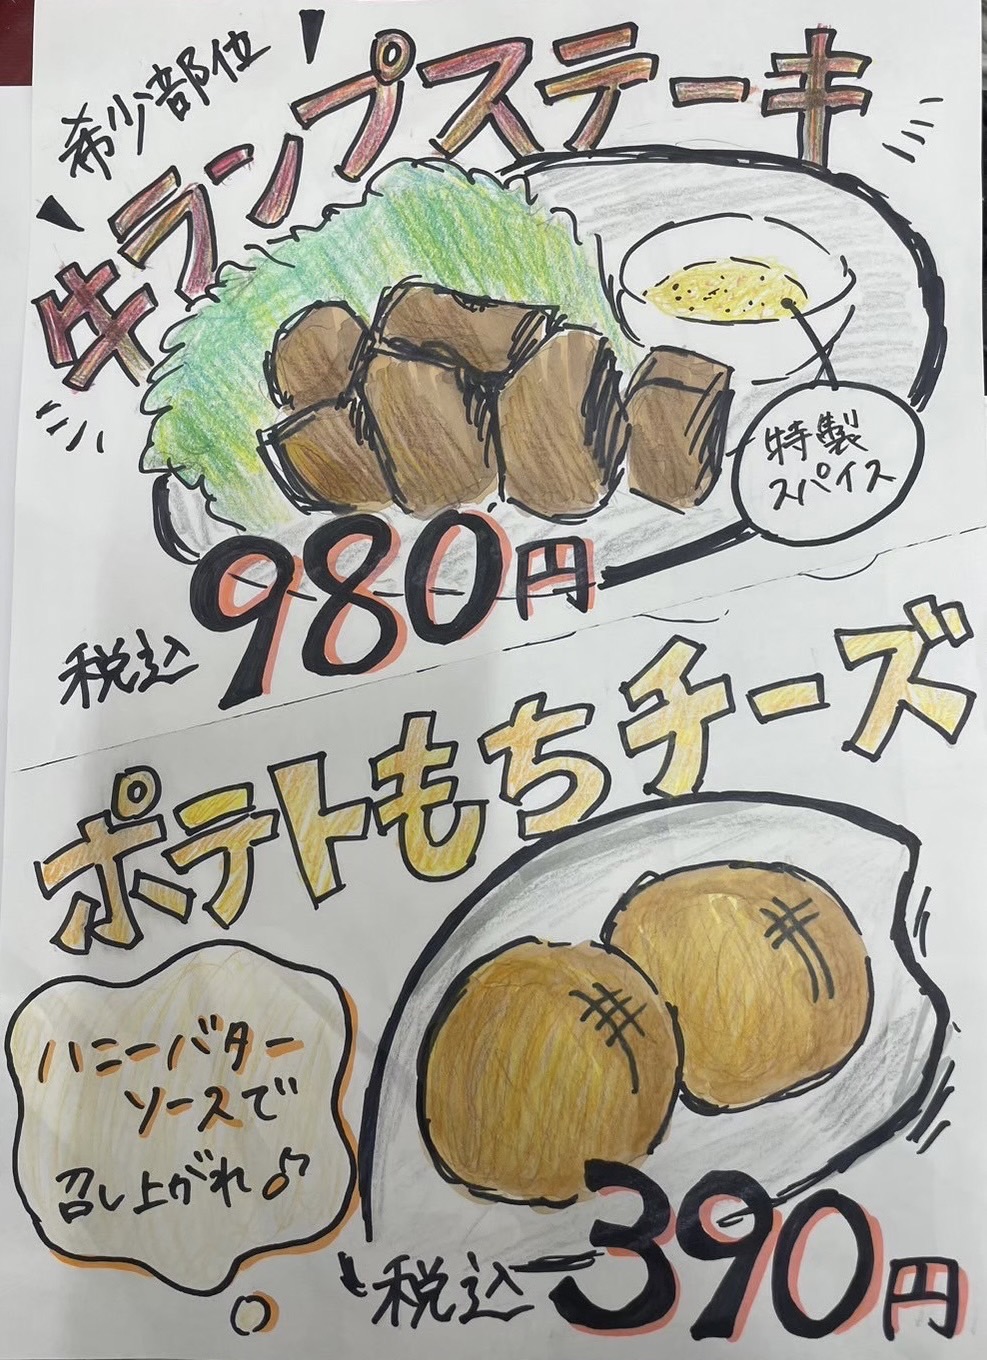 希少部位
牛ランプステーキ
特製
スパイス
税込980円
ポテトもちチーズ
ハニーバター
ソースで
召し上がれ♪
税込390円